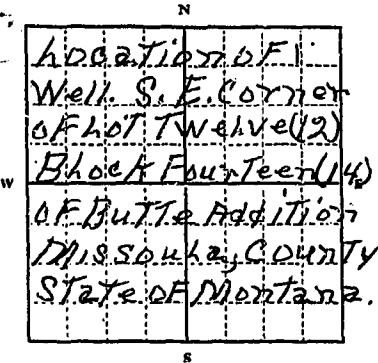 N
Location of 1
Well. S. E. Corner
of Lot Twelve (12)
Block Fourteen (14)
W E
of Butte Addition
Missoula, County
State of Montana.
S